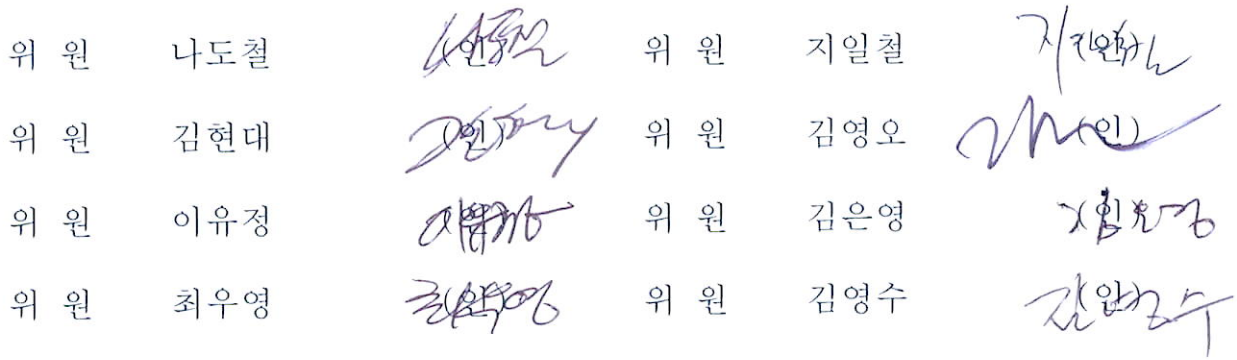 위 원 나도철 (인) 위 원 지일철 (인)
위 원 김현대 (인) 위 원 김영오 (인)
위 원 이유정 (인) 위 원 김은영 (인)
위 원 최우영 (인) 위 원 김영수 (인)